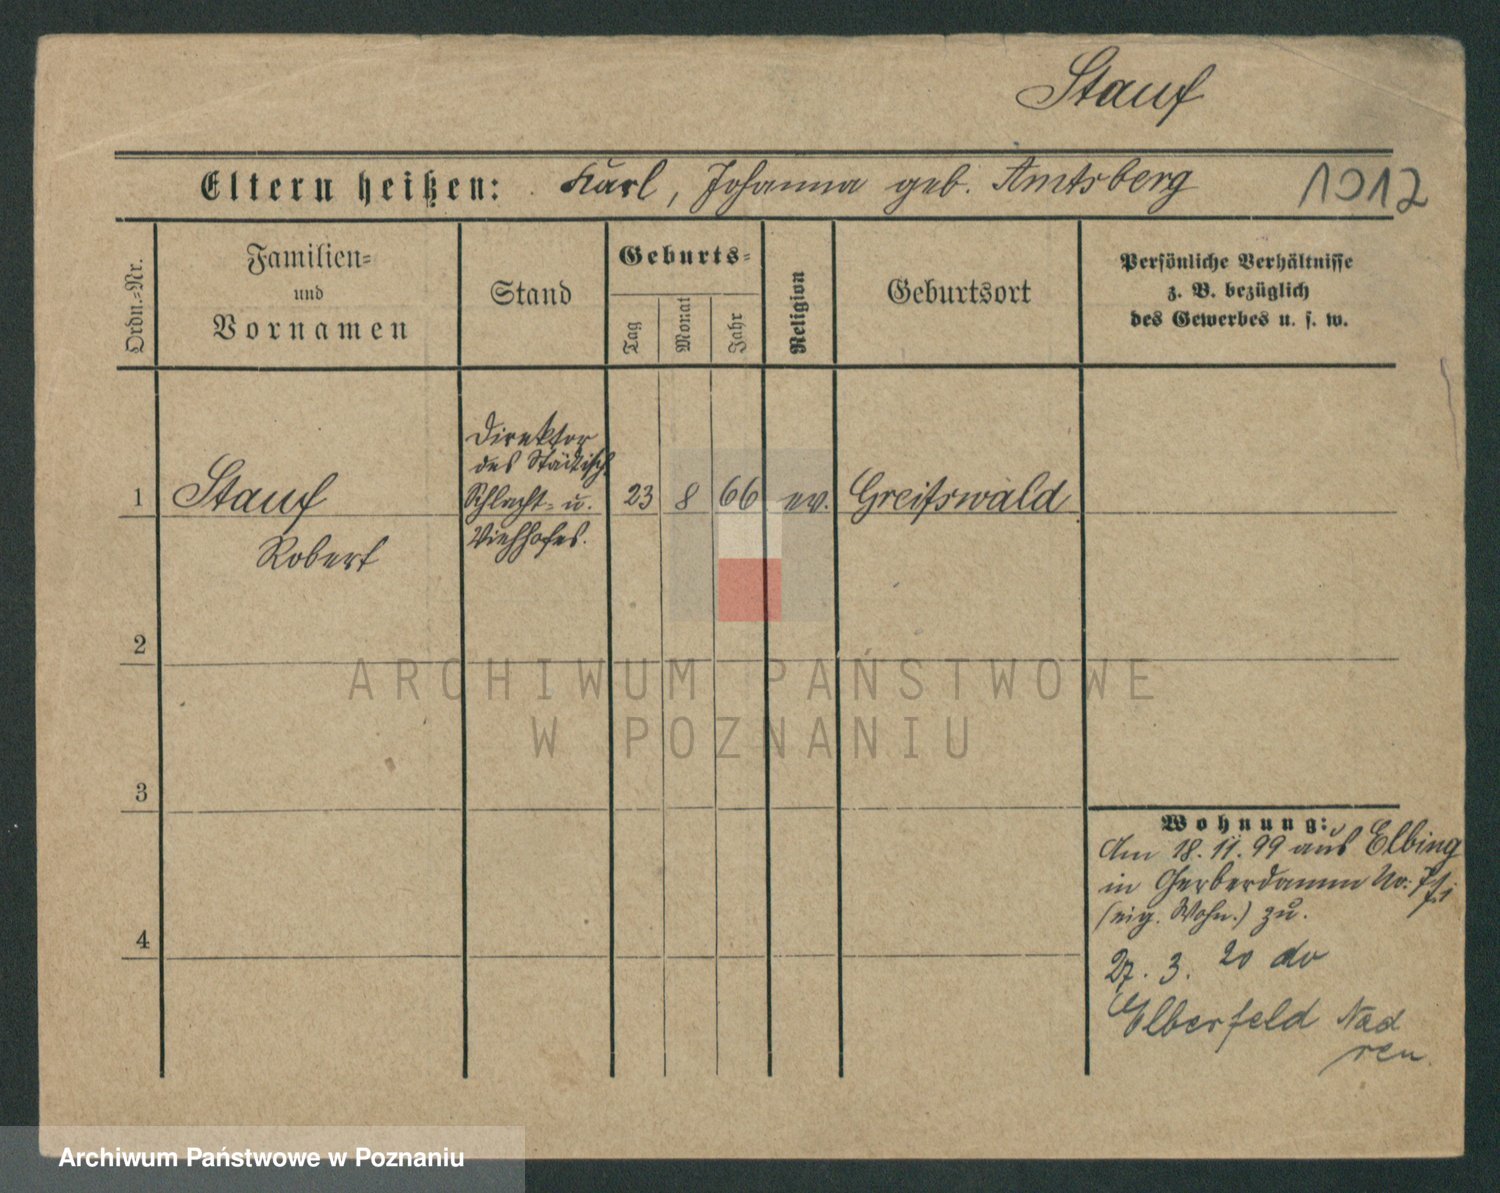 Stauf
Eltern heißen: Karl, Johanna geb. Amtsberg 1912
Ordn.=Nr.
Familien=
und
Vornamen
Stand
Geburts=
Tag
Monat
Jahr
Religion
Geburtsort
Persönliche Verhältnisse
z. B. bezüglich
des Gewerbes u. s. w.
1 Stauf
Robert
Direktor
des Städtisch.
Schlacht= u.
Viehhofes.
23 8 66 ev. Greifswald
2
3
4
Wohnung:
Am 18. 11. 99 aus Elbing
in Gerberdamm No:
(eig. Wohn.) zu.
27. 3. 20 do
Elberfeld
ARCHIWUM PAŃSTWOWE
W POZNANIU
Archiwum Państwowe w Poznaniu